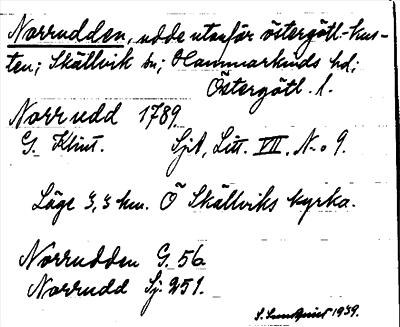 Norrudden, udde utanför östergötl.-kus-
ten; Skällvik sn; Hammarkinds hd;
Östergötl. l.
Norrudd 1789.
G. Klint. Sjk, Litt. VII. N:o 9.
Läge 3,3 km. Ö Skällviks kyrka.
Norrudden G. 56.
Norrudd Sj. 251.
S. Sundquist 1939.